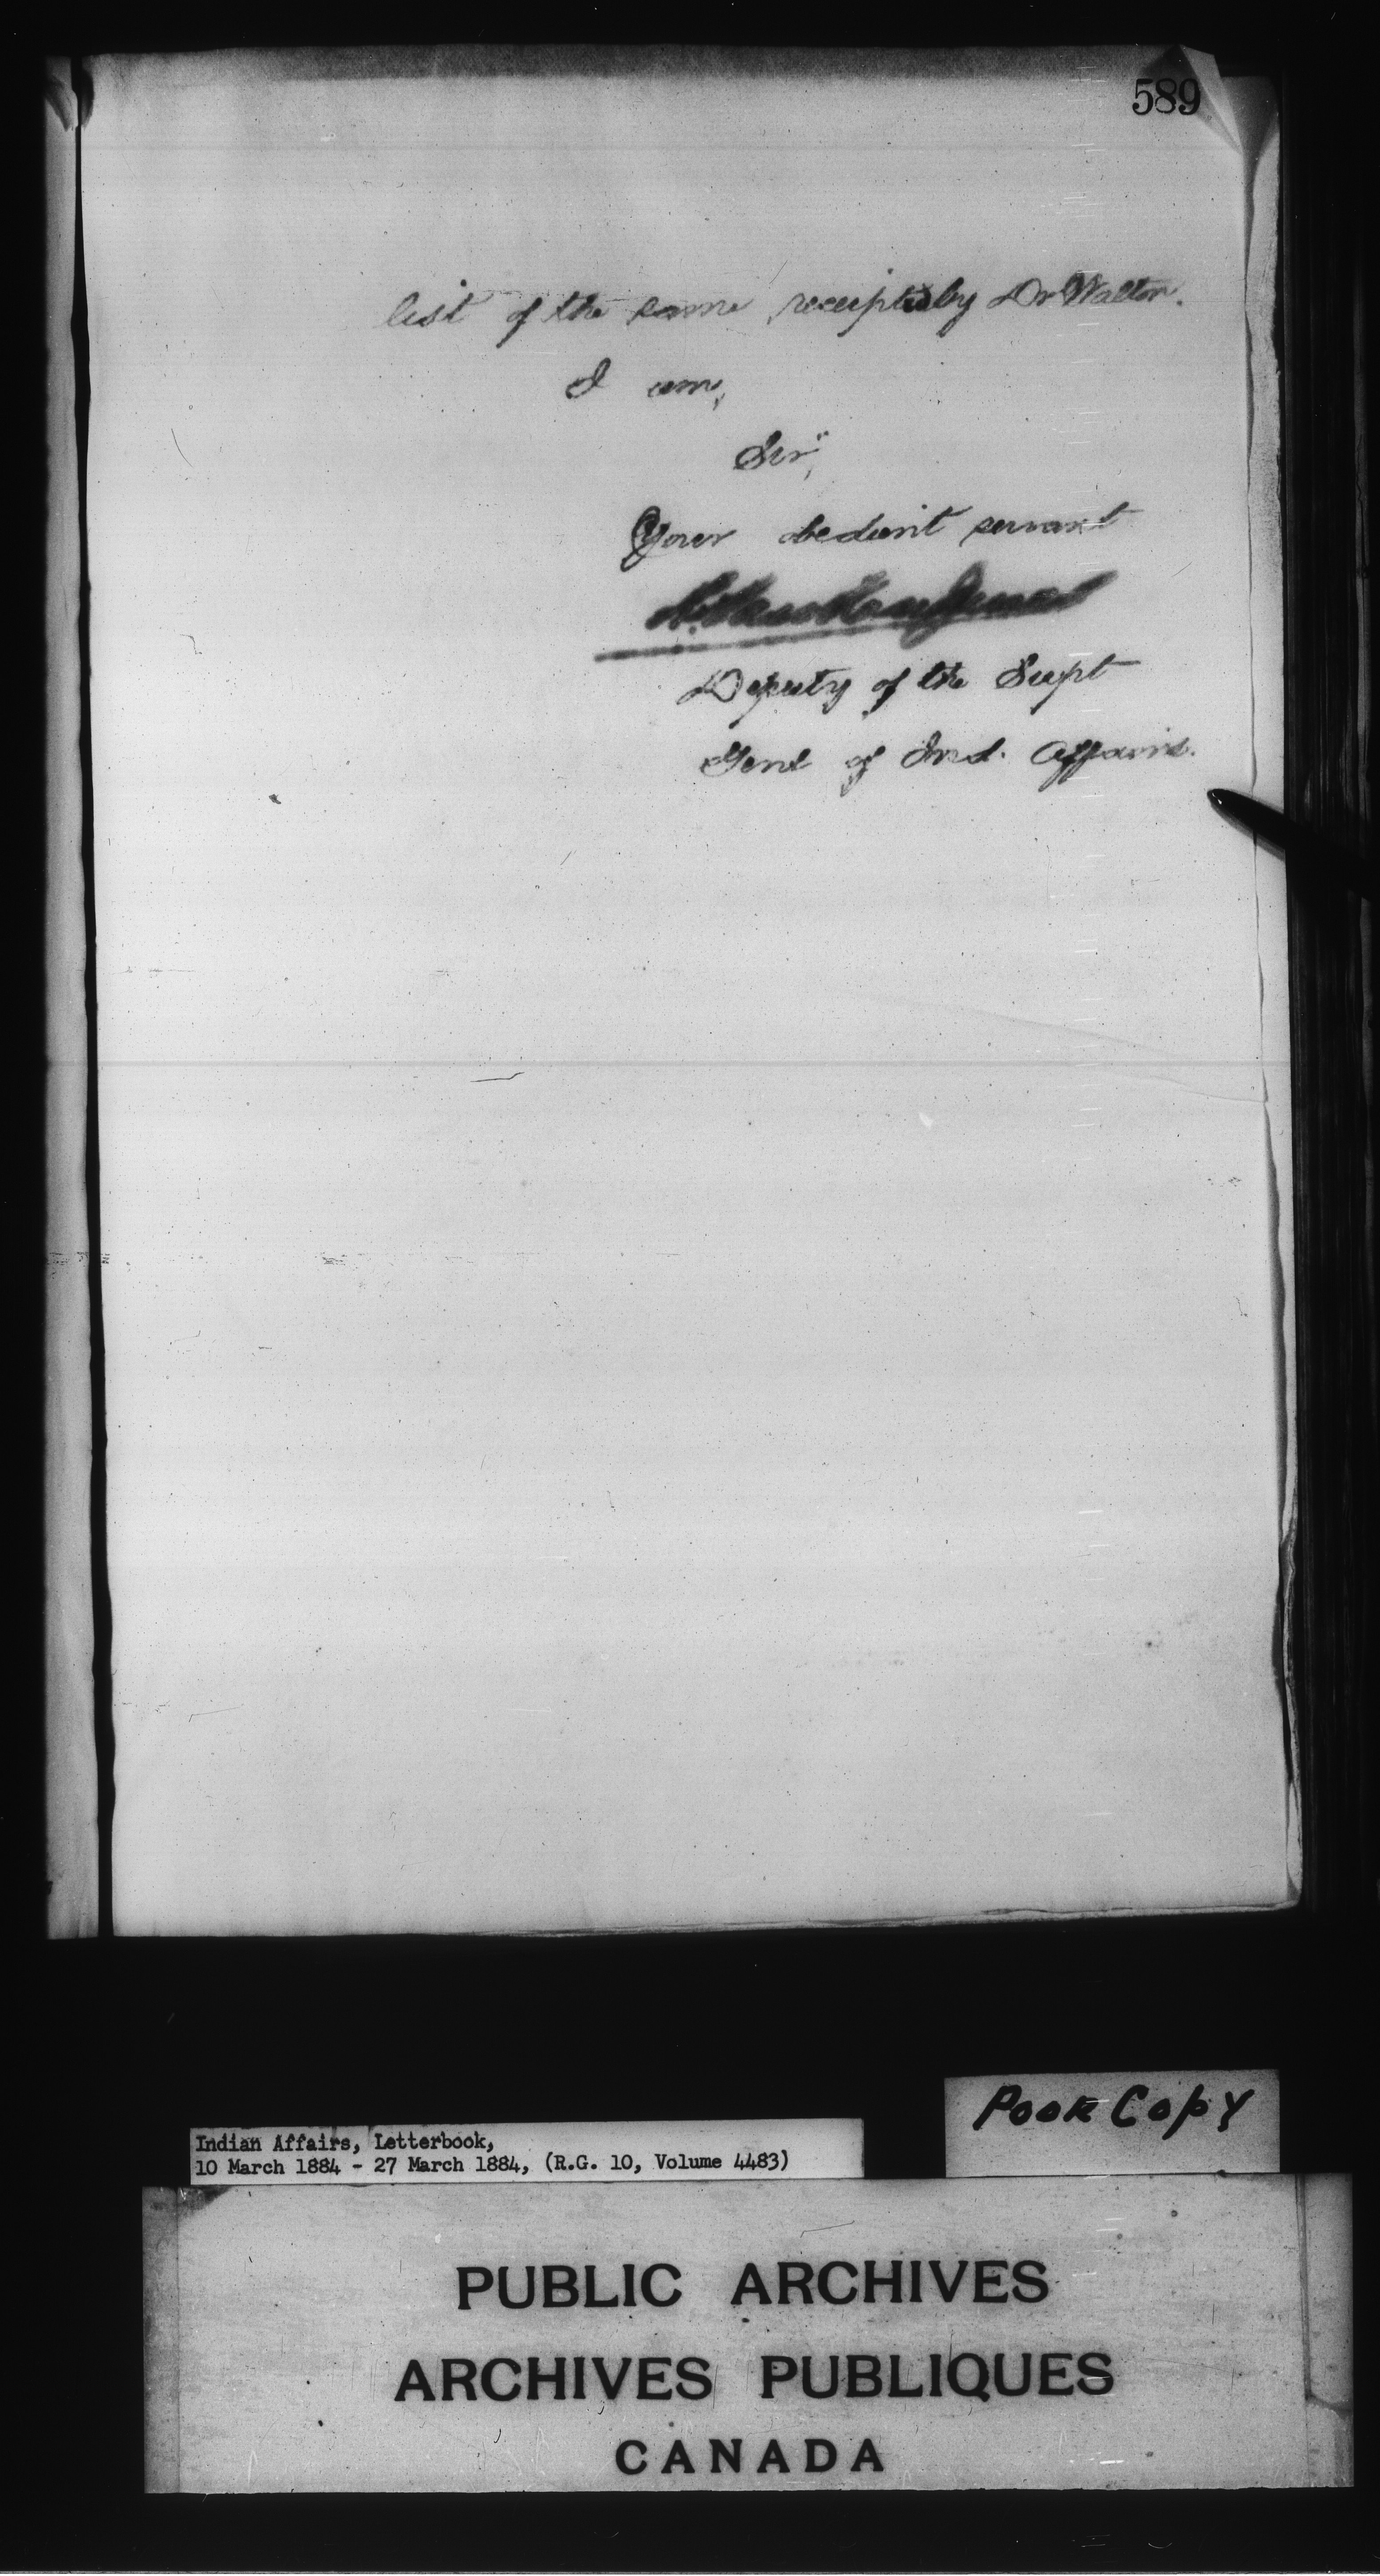 589
list of the same receipted by Dr Walton.
I am,
Sir,
Your obedient servant
L. Vankoughnet
Deputy of the Supt
Genl of Ind. Affairs.
Poor Copy
Indian Affairs, Letterbook,
10 March 1884 - 27 March 1884, (R.G. 10, Volume 4483)
PUBLIC ARCHIVES
ARCHIVES PUBLIQUES
CANADA